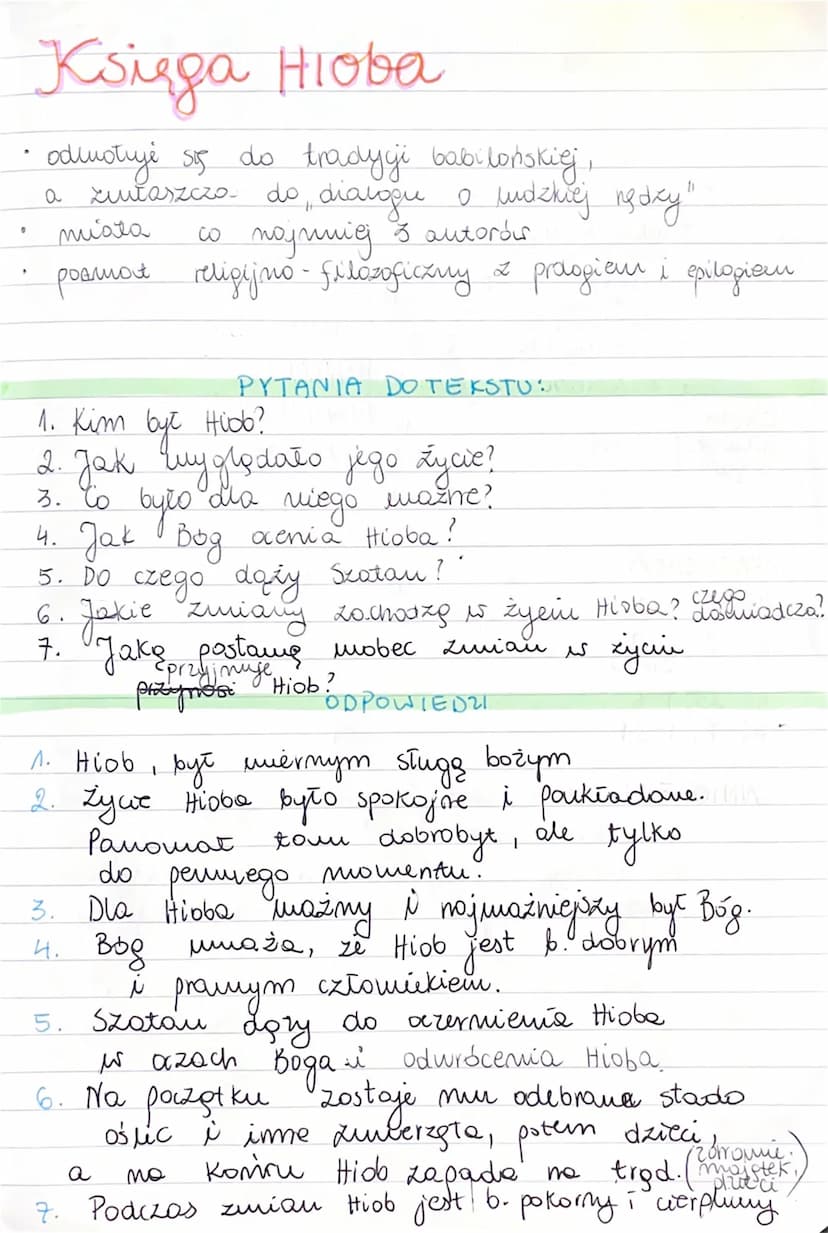 Księga Hioba
• odwołuje się do tradycji babilońskiej,
a zwłaszcza do „dialogu o ludzkiej nędzy"
• miała co najmniej 3 autorów
• poemat religijno-filozoficzny z prologiem i epilogiem
PYTANIA DO TEKSTU:
1. Kim był Hiob?
2. Jak wyglądało jego życie?
3. Co było dla niego ważne?
4. Jak Bóg ocenia Hioba?
5. Do czego dąży Szatan?
6. Jakie zmiany zachodzą w życiu Hioba? czego doświadcza?
7. Jaką postawę wobec zmian w życiu
przyjmuje
przynosi Hiob?
ODPOWIEDZI
1. Hiob, był wiernym sługą bożym
2. Życie Hioba było spokojne i poukładane.
Panował tam dobrobyt, ale tylko
do pewnego momentu.
3. Dla Hioba ważny i najważniejszy był Bóg.
4. Bóg uważa, że Hiob jest b. dobrym
i prawym człowiekiem.
5. Szatan dąży do oczernienia Hioba
w oczach Boga i odwrócenia Hioba.
6. Na początku zostaje mu odebrane stado
oślic i inne zwierzęta, potem dzieci,
a na końcu Hiob zapada na trąd. (zdrowie, majątek, dzieci)
7. Podczas zmian Hiob jest b. pokorny i cierpliwy